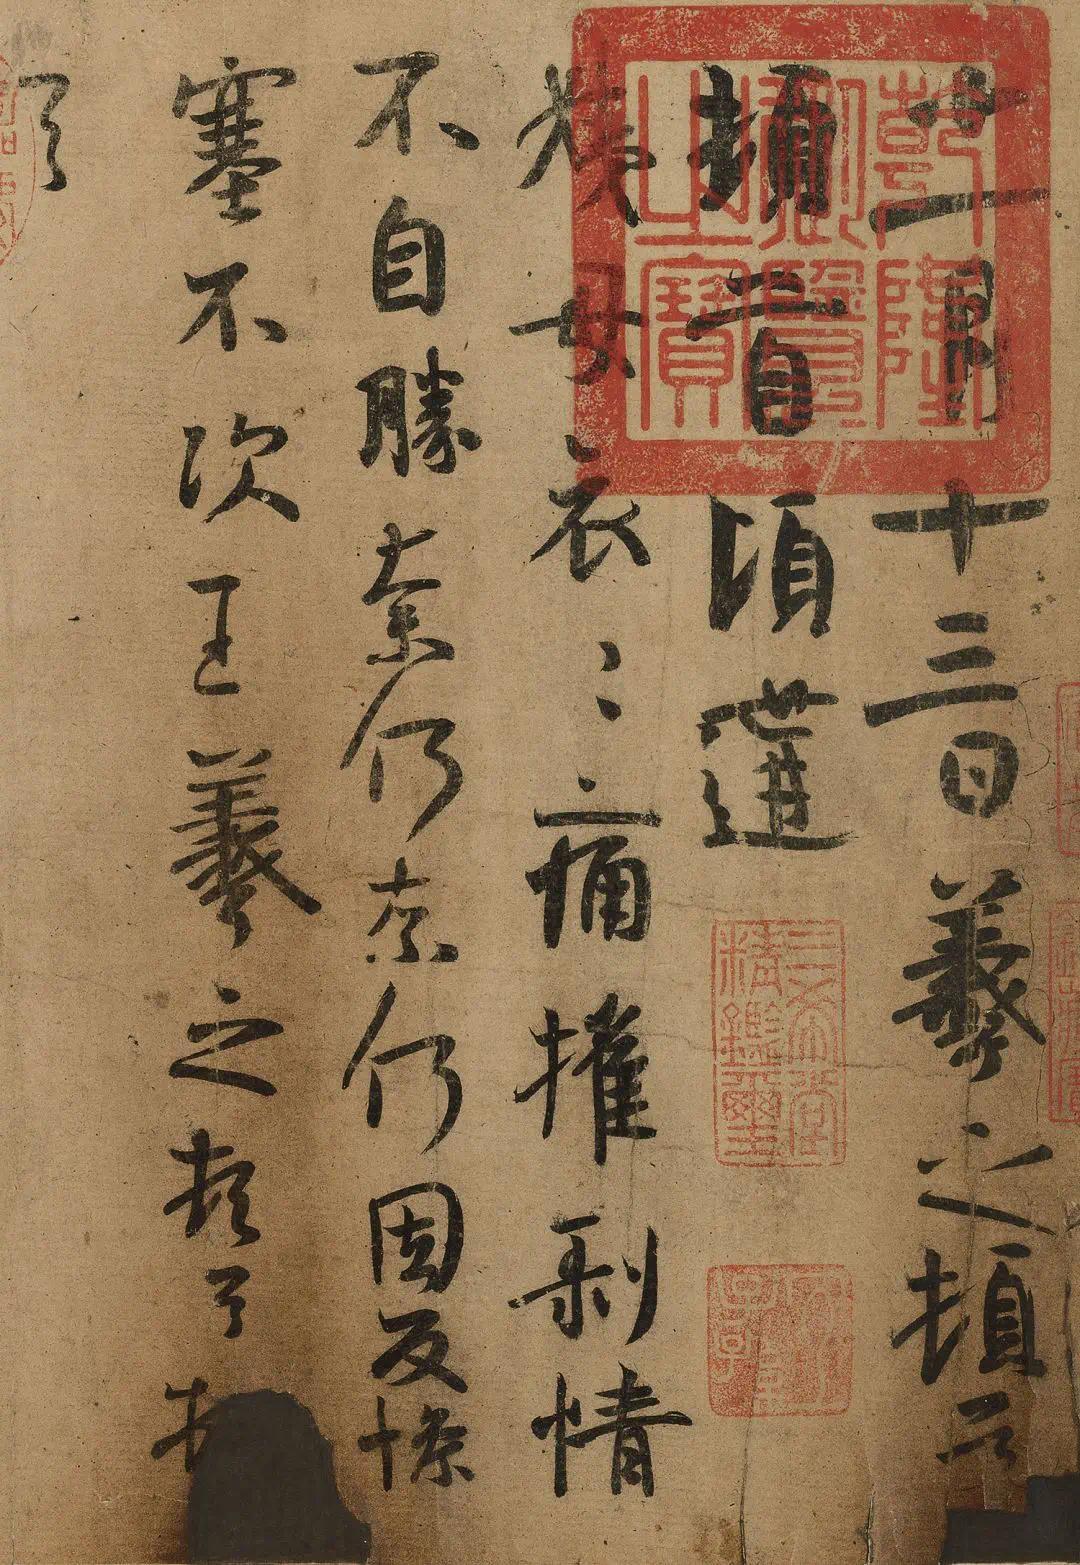 十一月十三日羲之頓首
頓首頃遘
姨母哀〻痛摧剝情
不自勝奈何奈何因反慘
塞不次王羲之頓首
首
乾隆御覽之寶
三希堂精鑑璽
宜子孫